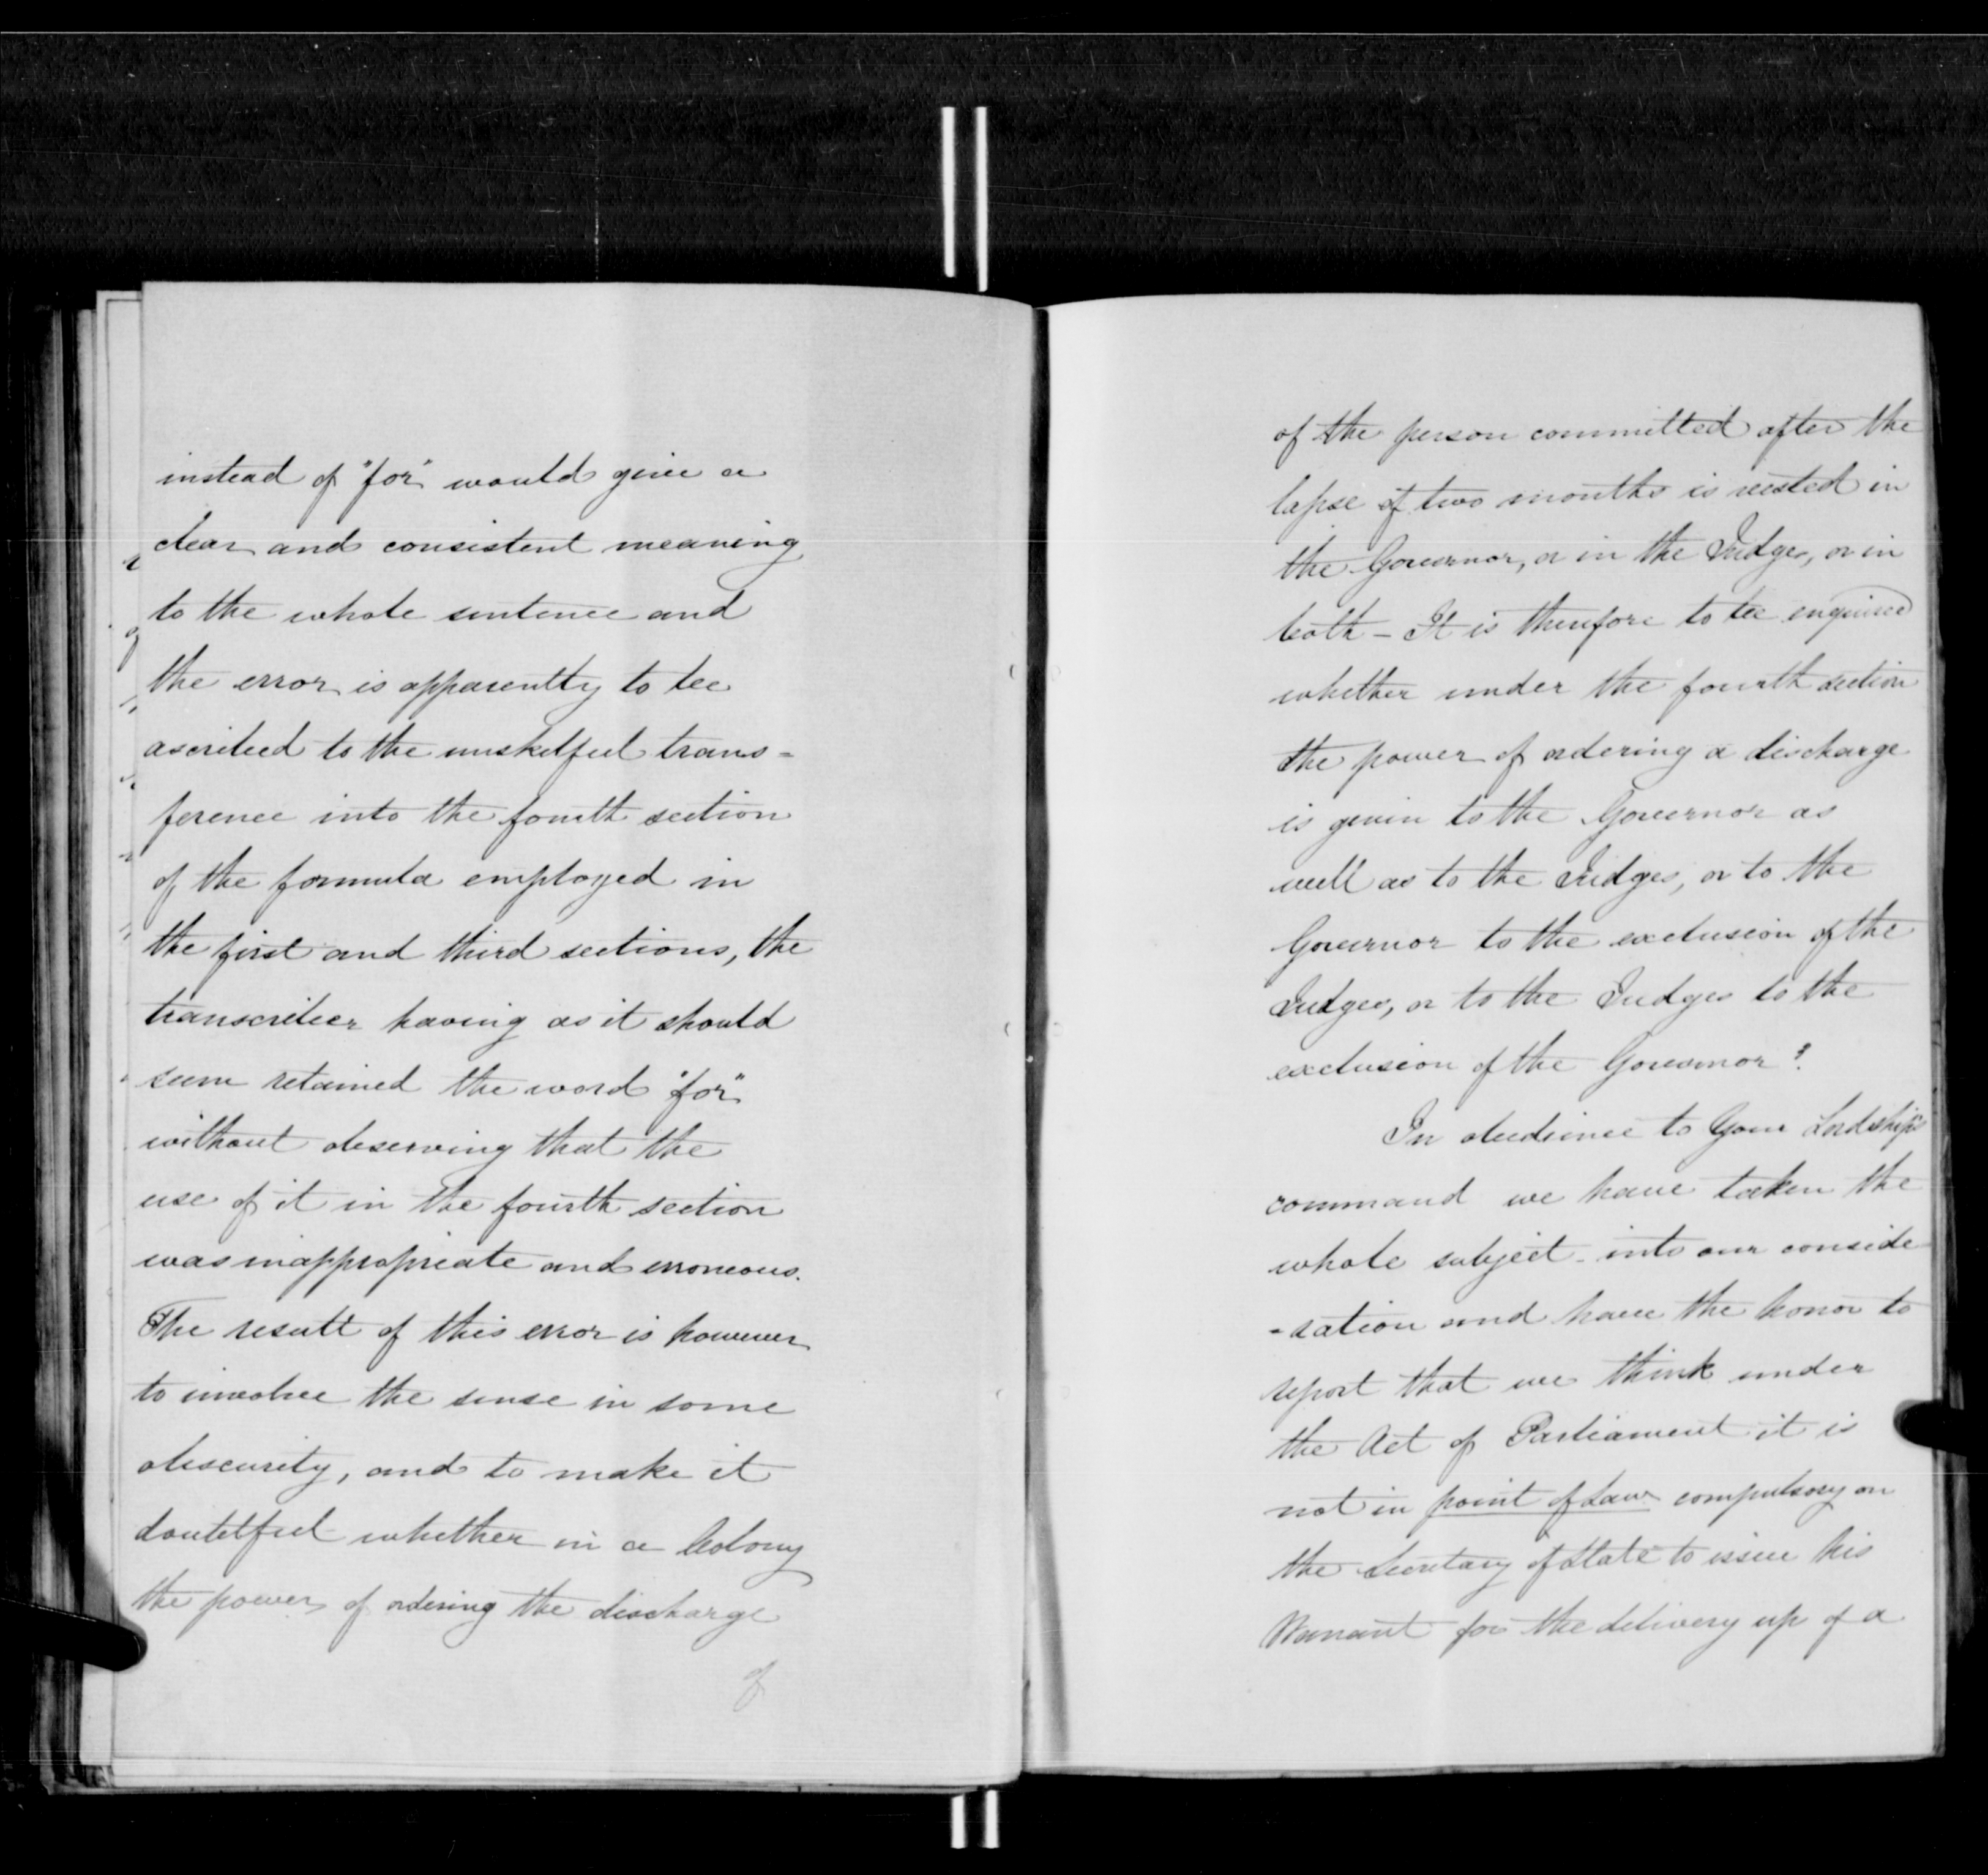 instead of "for" would give a
clear and consistent meaning
to the whole sentence and
the error is apparently to be
ascribed to the unskilful trans=
ference into the fourth section
of the formula employed in
the first and third sections, the
transcriber having as it should
seem retained the word "for"
without observing that the
use of it in the fourth section
was inappropriate and erroneous.
The result of this error is however
to involve the sense in some
obscurity, and to make it
doubtful whether in a Colony
the power of ordering the discharge
of
of the person committed after the
lapse of two months is vested in
the Governor, or in the Judges, or in
both - It is therefore to be enquired
whether under the fourth section
the power of ordering a discharge
is given to the Governor as
well as to the Judges, or to the
Governor to the exclusion of the
Judges, or to the Judges to the
exclusion of the Governor?
In obedience to Your Lordship's
command we have taken the
whole subject into our conside
-ration and have the honor to
report that we think under
the Act of Parliament it is
not in point of Law compulsory on
the Secretary of State to issue his
Warrant for the delivery up of a